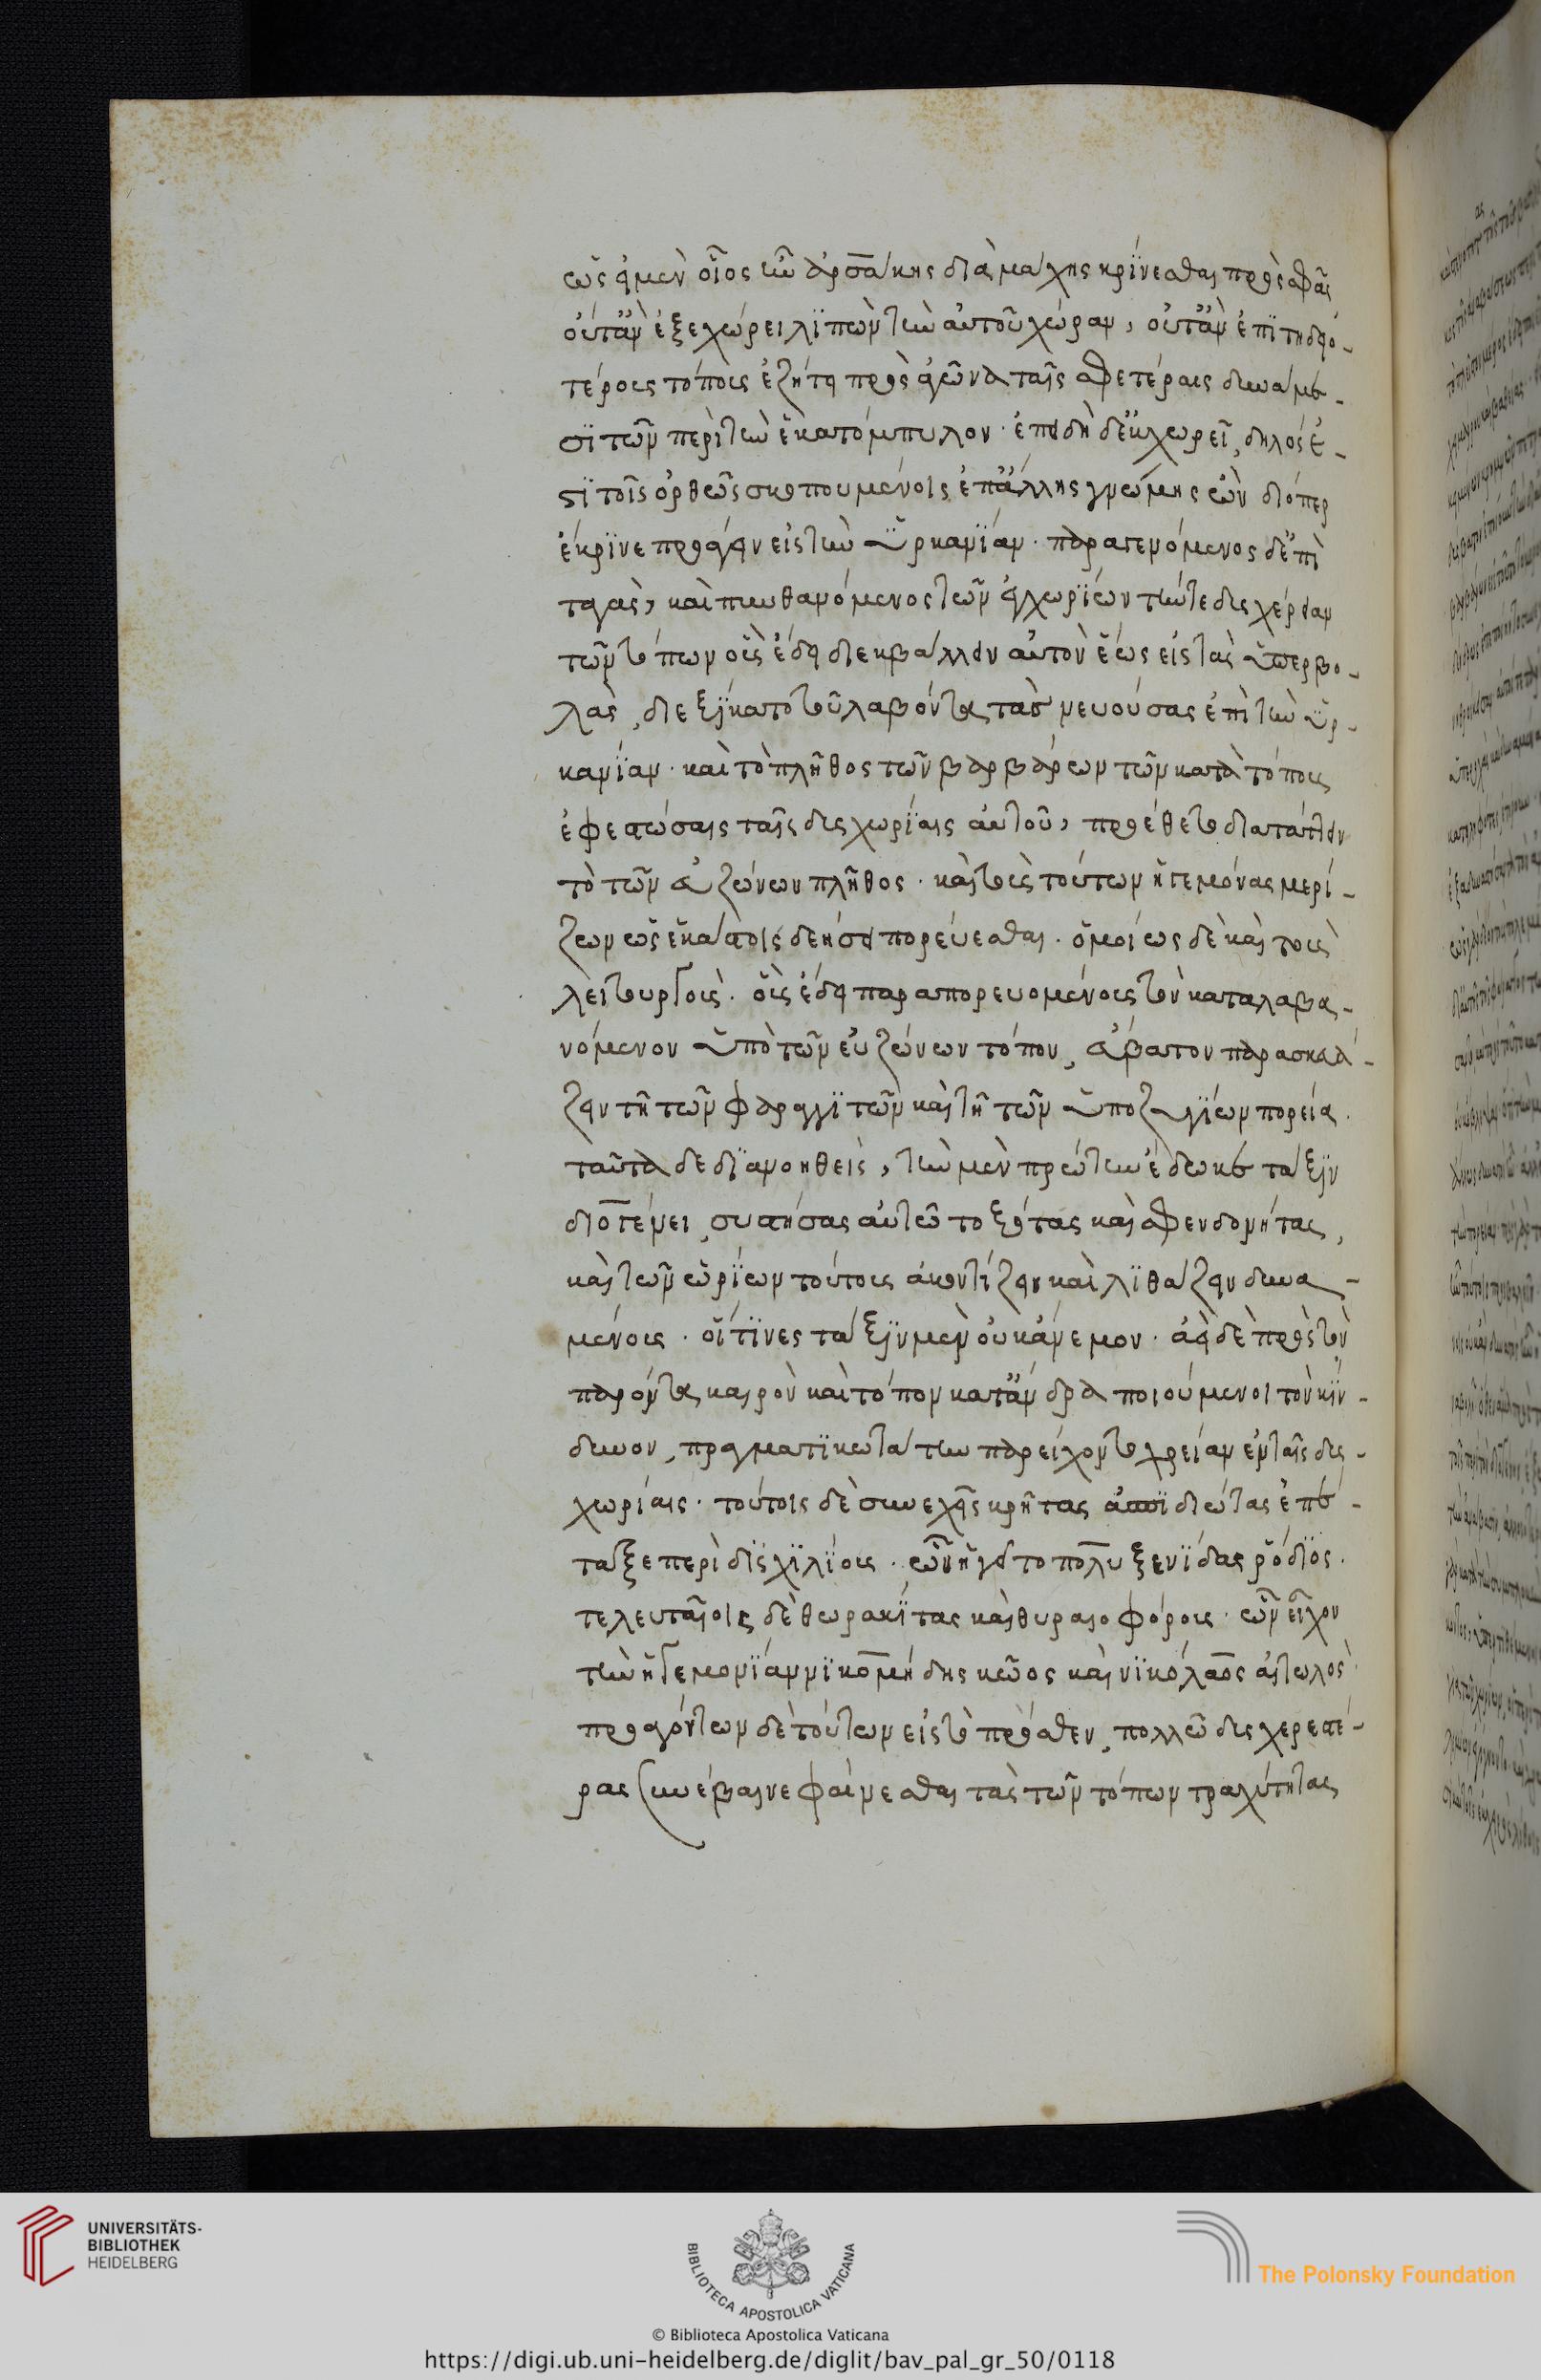 ὡς εἰ μὲν οἷος ἦν ἀρσάκης διὰ μάχης κρίνεσθαι πρὸς σφᾶς
οὔτἂν ἐξεχώρει λιπὼν τὴν αὐτοῦ χώραν, οὔτἂν ἐπιτηδειο-
τέρους τόπους ἐζήτει πρὸς ἀγῶνα ταῖς σφετέραις δυνάμε-
σι τῶν περὶ τὴν ἑκατόμπυλον· ἐπειδὴ δἐκχωρεῖ, δηλός ἐ-
στι τοῖς ὀρθῶς σκοπουμένοις ἐπἄλλης γνώμης ὢν διόπερ
ἔκρινε προάγειν εἰς τὴν ὑρκανίαν· παραγενόμενος δἐπὶ
ταγὰς, καὶ πυνθανόμενος τῶν ἐγχωρίων τήν τε δυσχέρειαν
τῶν τόπων οὓς ἔδει διεκβάλλειν αὐτὸν ἕως εἰς τὰς ὑπερβο-
λὰς, διεξίκατο τοῦ λαβόντας τὰς νευούσας ἐπὶ τὴν ὑρ-
κανίαν· καὶ τὸ πλῆθος τῶν βαρβάρων τῶν κατὰ τόπους
ἐφεστώσαις ταῖς δυσχωρίαις αὐτοῦ, προέθετο διατάττειν
τὸ τῶν εὐζώνων πλῆθος· καὶ τοὺς τούτων ἡγεμόνας μερί-
ζων ὡς ἑκάστοις δεήσει πορεύεσθαι. ὁμοίως δὲ καὶ τοὺς
λειτουργοὺς. οὓς ἔδει παραπορευομένους τὸν καταλαβα-
νόμενον ὑπὸ τῶν εὐζώνων τόπον, εὔβατον παρασκευά-
ζειν τῆ τῶν φαραγγιτῶν καὶ τῆ τῶν ὑποζυγίων πορεία.
ταῦτα δὲ διανοηθεὶς, τὴν μὲν πρώτην ἔδωκε τάξιν
διογένει, συστήσας αὐτῶ τοξότας καὶ σφενδονήτας,
καὶ τῶν ὀρίων τούτους ἀκοντίζειν καὶ λιθάζειν δυνα-
μένους. οἵτινες τάξιν μὲν οὐκ ἔνεμον. ἀεὶ δὲ πρὸς τὸν
παρόντα καιρὸν καὶ τόπον κατἄνδρα ποιούμενοι τὸν κίν-
δυνον, πραγματικωτάτην παρείχοντο χρείαν ἐν ταῖς δυσ-
χωρίαις. τούτοις δὲ συνεχεῖς κρῆτας ἀσπιδιώτας ἐπέ-
ταξε περὶ δισχιλίους. ὧν ἡγεῖτο πολυξενίδας ῥόδιος.
τελευταίοις δὲ θωρακίτας καὶ θυραιοφόρους. ὧν εἶχον
τὴν ἡγεμονίαν νικομήδης κῶος καὶ νικόλαος αἰτωλὸς.
προαγόντων δὲ τούτων εἰς τὸ πρόσθεν, πολλῶ δυσχερεστέ-
ρας συνέβαινε φαίνεσθαι τὰς τῶν τόπων τραχύτητας
UNIVERSITÄTS-
BIBLIOTHEK
HEIDELBERG
BIBLIOTECA APOSTOLICA VATICANA
© Biblioteca Apostolica Vaticana
The Polonsky Foundation
https://digi.ub.uni-heidelberg.de/diglit/bav_pal_gr_50/0118